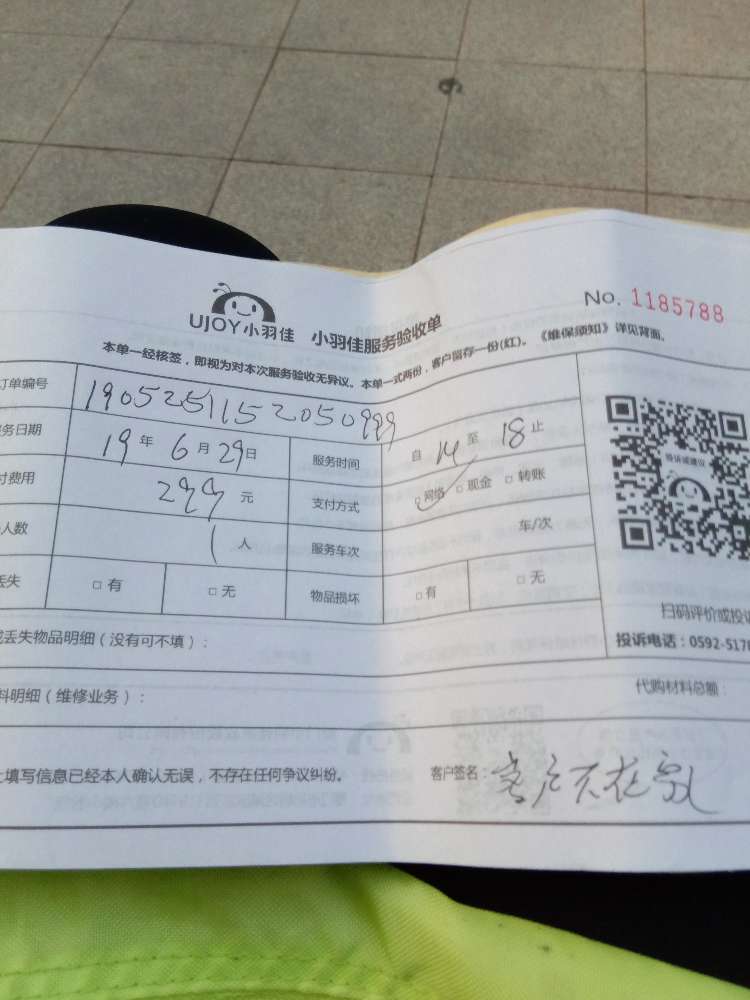 No. 1185788
UJOY小羽佳 小羽佳服务验收单
本单一经核签，即视为对本次服务验收无异议。本单一式两份，客户留存一份(红)。《维保须知》详见背面。
订单编号 1905251152050999
务日期 19年6月29日 服务时间 自14至18止
付费用 299元 支付方式 □网络 □现金 □转账
人数 1人 服务车次 车/次
丢失 □有 □无 物品损坏 □有 □无
投诉或建议
扫码评价或投诉
投诉电话：0592-5178
丢失物品明细（没有可不填）：
料明细（维修业务）： 代购材料总额：
上填写信息已经本人确认无误，不存在任何争议纠纷。 客户签名：客户不在家